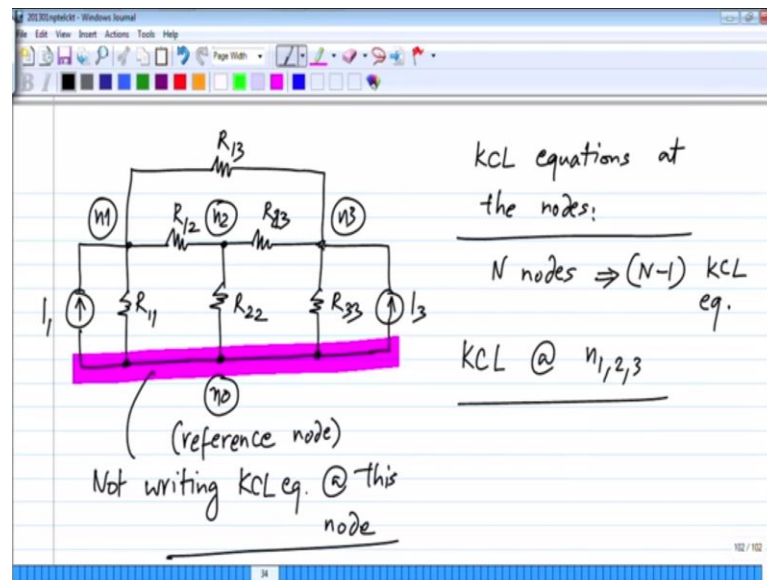 201301nptelckt - Windows Journal
File Edit View Insert Actions Tools Help
Page Width
B I
R13
n1
R12
n2
R23
n3
I1
R11
R22
R33
I3
n0
(reference node)
Not writing KCL eq. @ this
node
KCL equations at
the nodes:
N nodes ⇒ (N-1) KCL
eq.
KCL @ n1,2,3
102 / 102
34